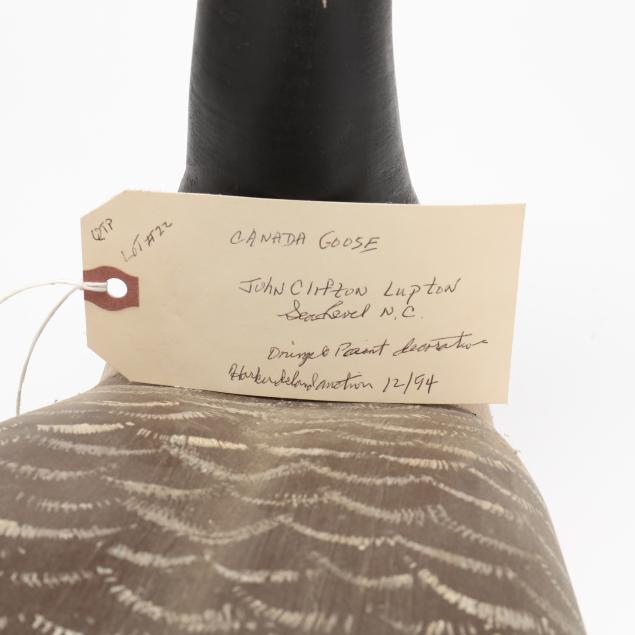 QTP
LOT #22
CANADA GOOSE
John Clifton Lupton
Sea Level N.C.
Original Paint decorative
Harker Island auction 12/94